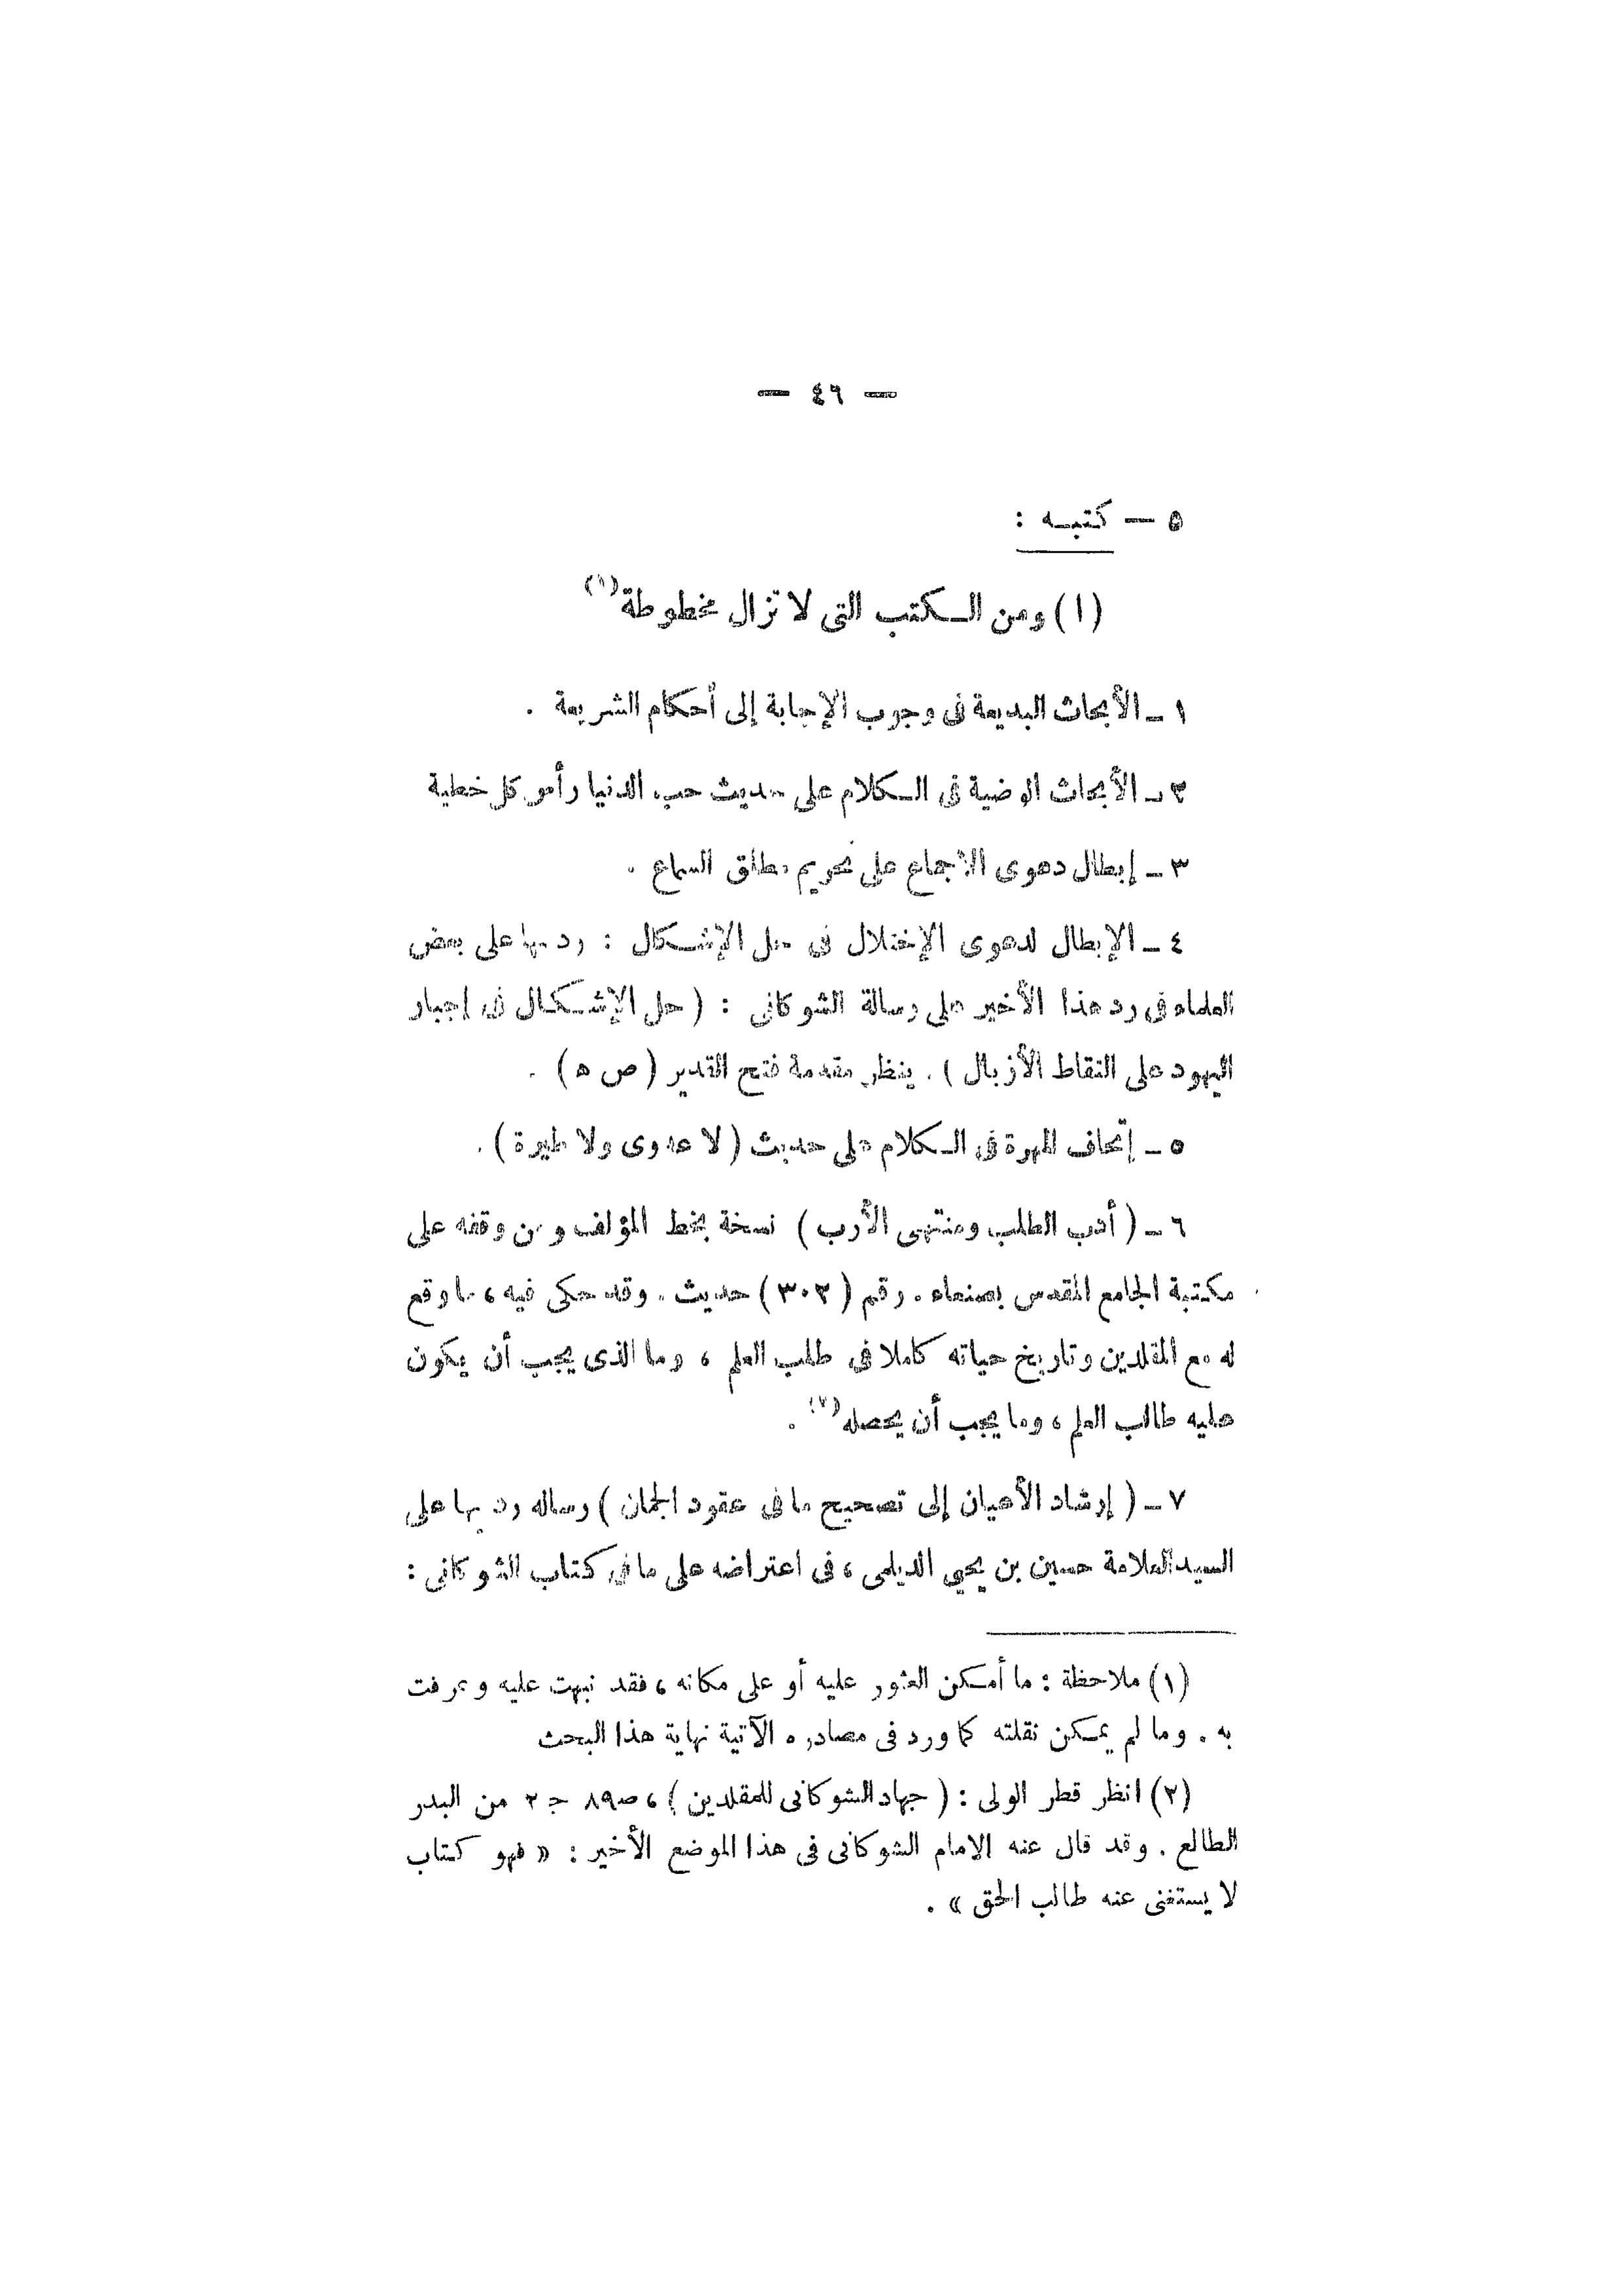 — ٤٦ —
٥ — كتبه :
(١) ومن الكتب التى لا تزال مخطوطة(١)
١ - الأبحاث البديعة فى وجوب الإجابة إلى أحكام الشريعة .
٢ - الأبحاث الوضية فى الكلام على حديث حب الدنيا رأس كل خطية
٣ - إبطال دعوى الاجماع على تحريم مطلق السماع .
٤ - الإبطال لدعوى الإختلال فى حل الإشكال : رد بها على بعض
العلماء فى رد هذا الأخير على رسالة الشوكانى : ( حل الإشكال فى إجبار
اليهود على التقاط الأزبال ) . ينظر مقدمة فتح القدير ( ص ه ) .
٥ - إتحاف المهرة فى الكلام على حديث ( لا عدوى ولا طيرة ) .
٦ - ( أدب الطلب ومنتهى الأرب ) نسخة بخط المؤلف ومن وقفه على
مكتبة الجامع المقدس بصنعاء . رقم ( ٣٠٢ ) حديث . وقد حكى فيه ، ما وقع
له مع المقلدين وتاريخ حياته كاملا فى طلب العلم ، وما الذى يجب أن يكون
عليه طالب العلم ، وما يجب أن يحصله(٢) .
٧ - ( إرشاد الأعيان إلى تصحيح ما فى عقود الجمان ) رساله رد بها على
السيد العلامة حسين بن يحيى الديلمى ، فى اعتراضه على ما فى كتاب الشوكانى :
(١) ملاحظة : ما أمكن العثور عليه أو على مكانه ، فقد نبهت عليه وعرفت
به . وما لم يمكن نقلته كما ورد فى مصادره الآتية نهاية هذا البحث
(٢) انظر قطر الولى : ( جهاد الشوكانى للمقلدين ) ، صـ ٨٩ جـ ٢ من البدر
الطالع . وقد قال عنه الامام الشوكانى فى هذا الموضع الأخير : « فهو كتاب
لا يستغنى عنه طالب الحق » .